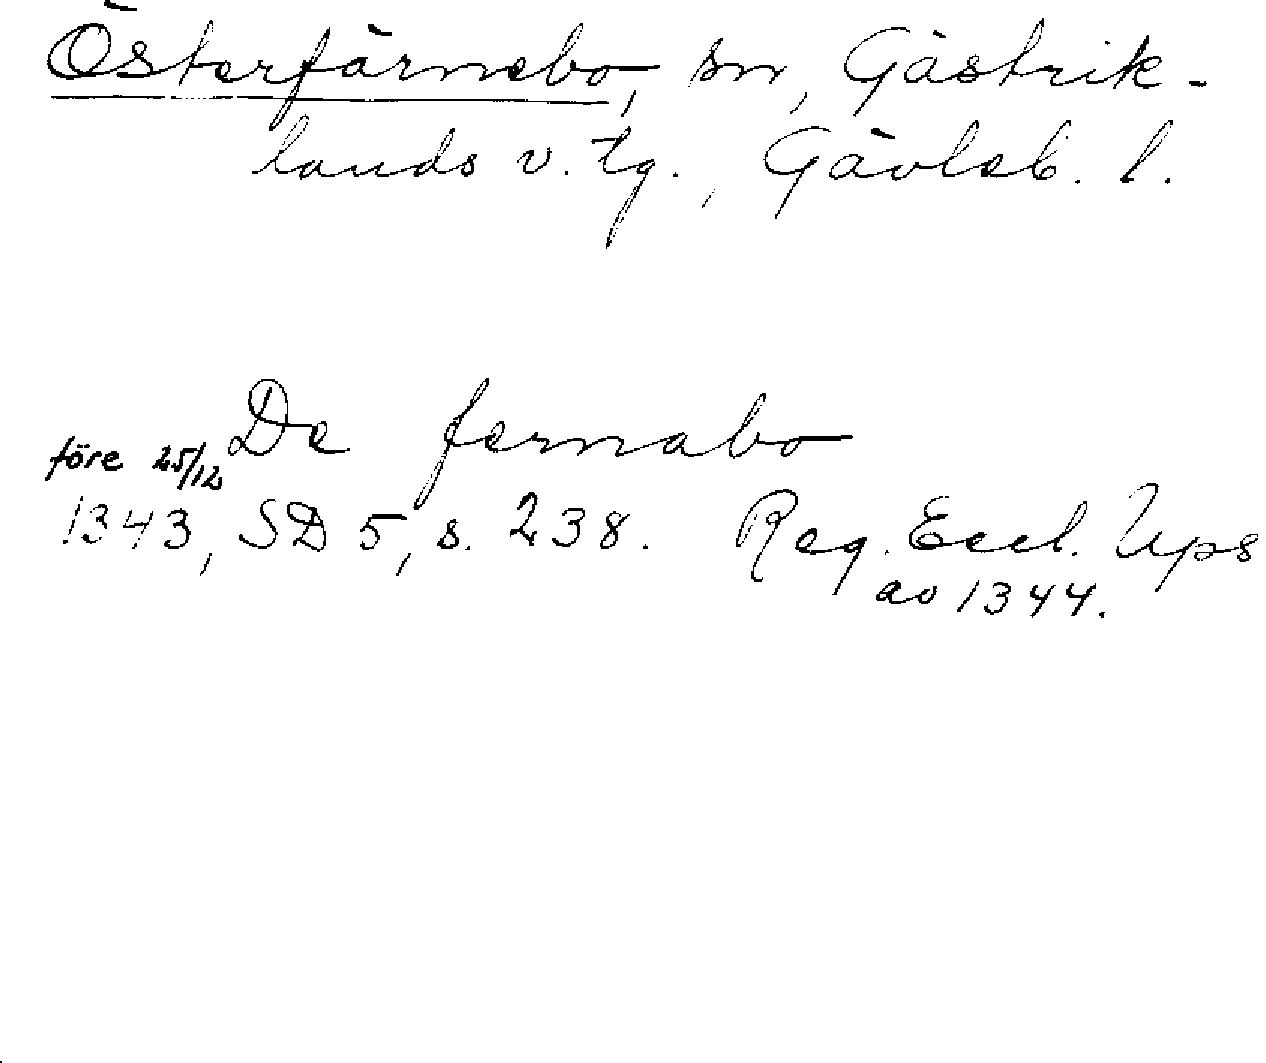 Österfärnebo, sn, Gästrik-
lands v. tg., Gävleb. l.
De fernabo
före 25/12
1343, SD 5, s. 238. Reg. Eccl. Ups
av 1344.